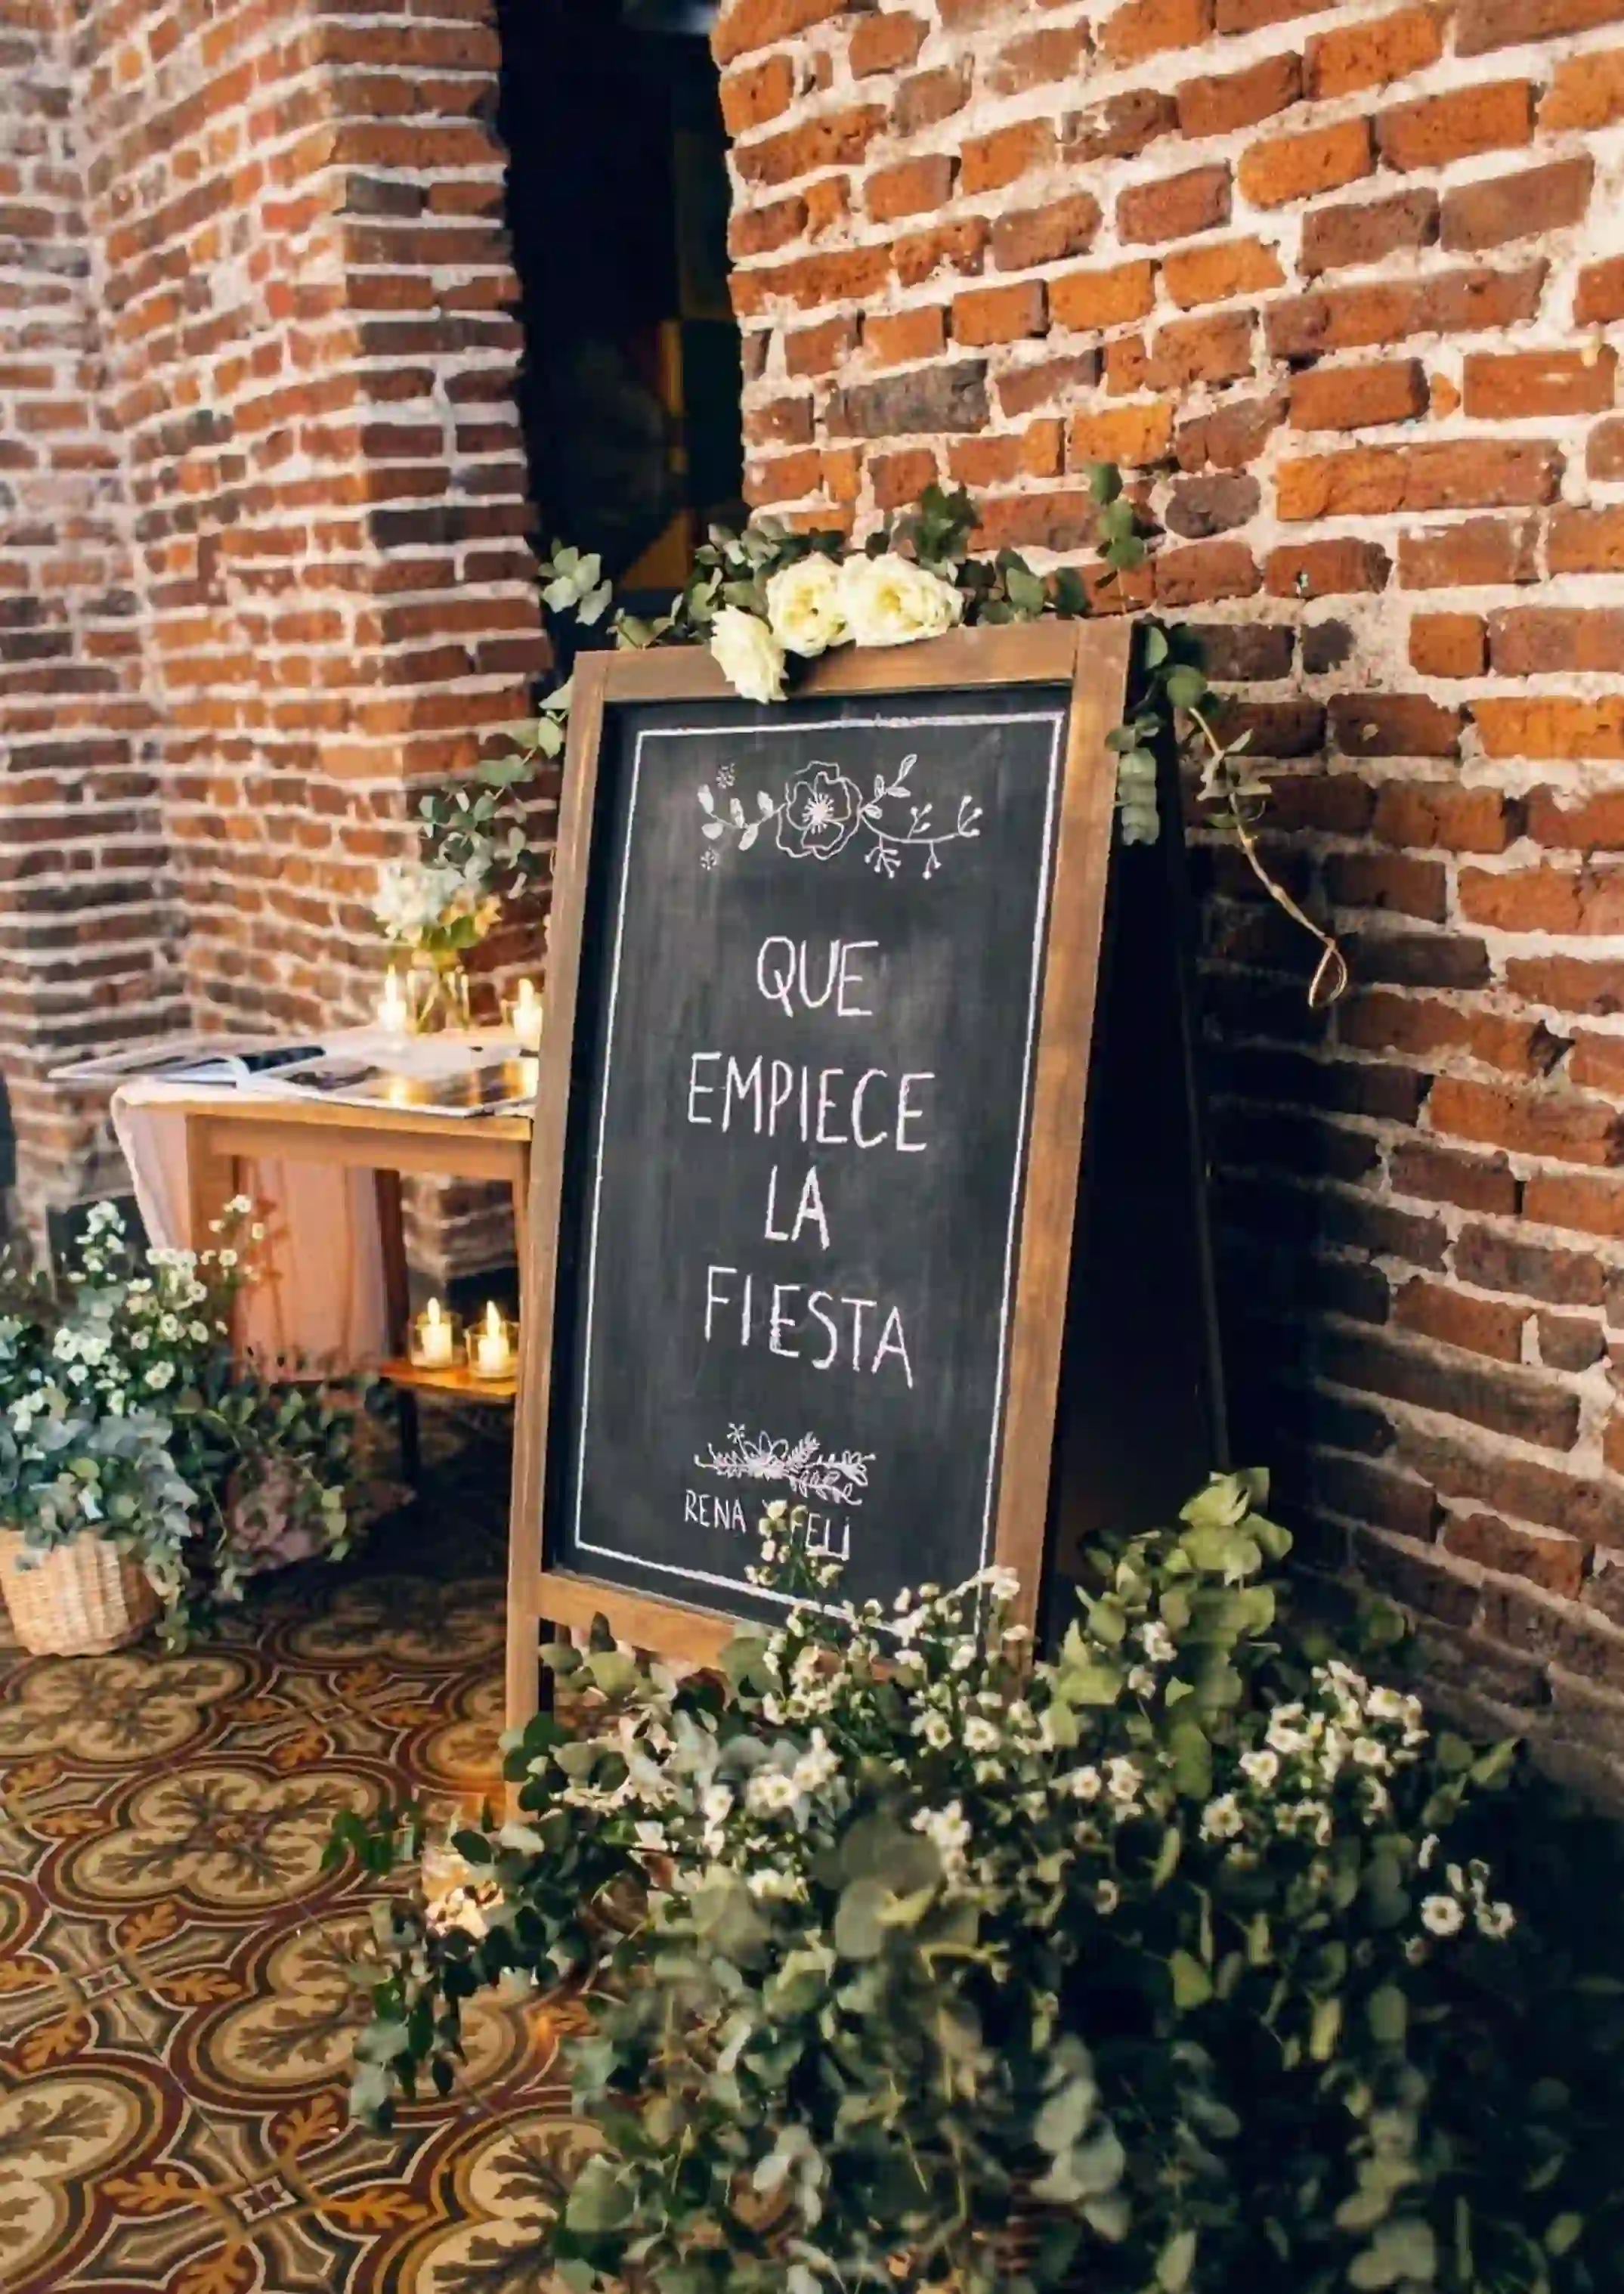 QUE
EMPIECE
LA
FIESTA
RENA Y FELi